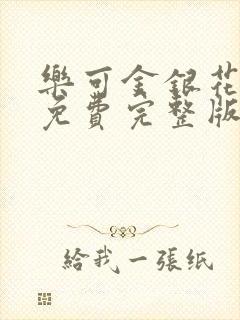 樂可金銀花
免費完整版
給我一張紙